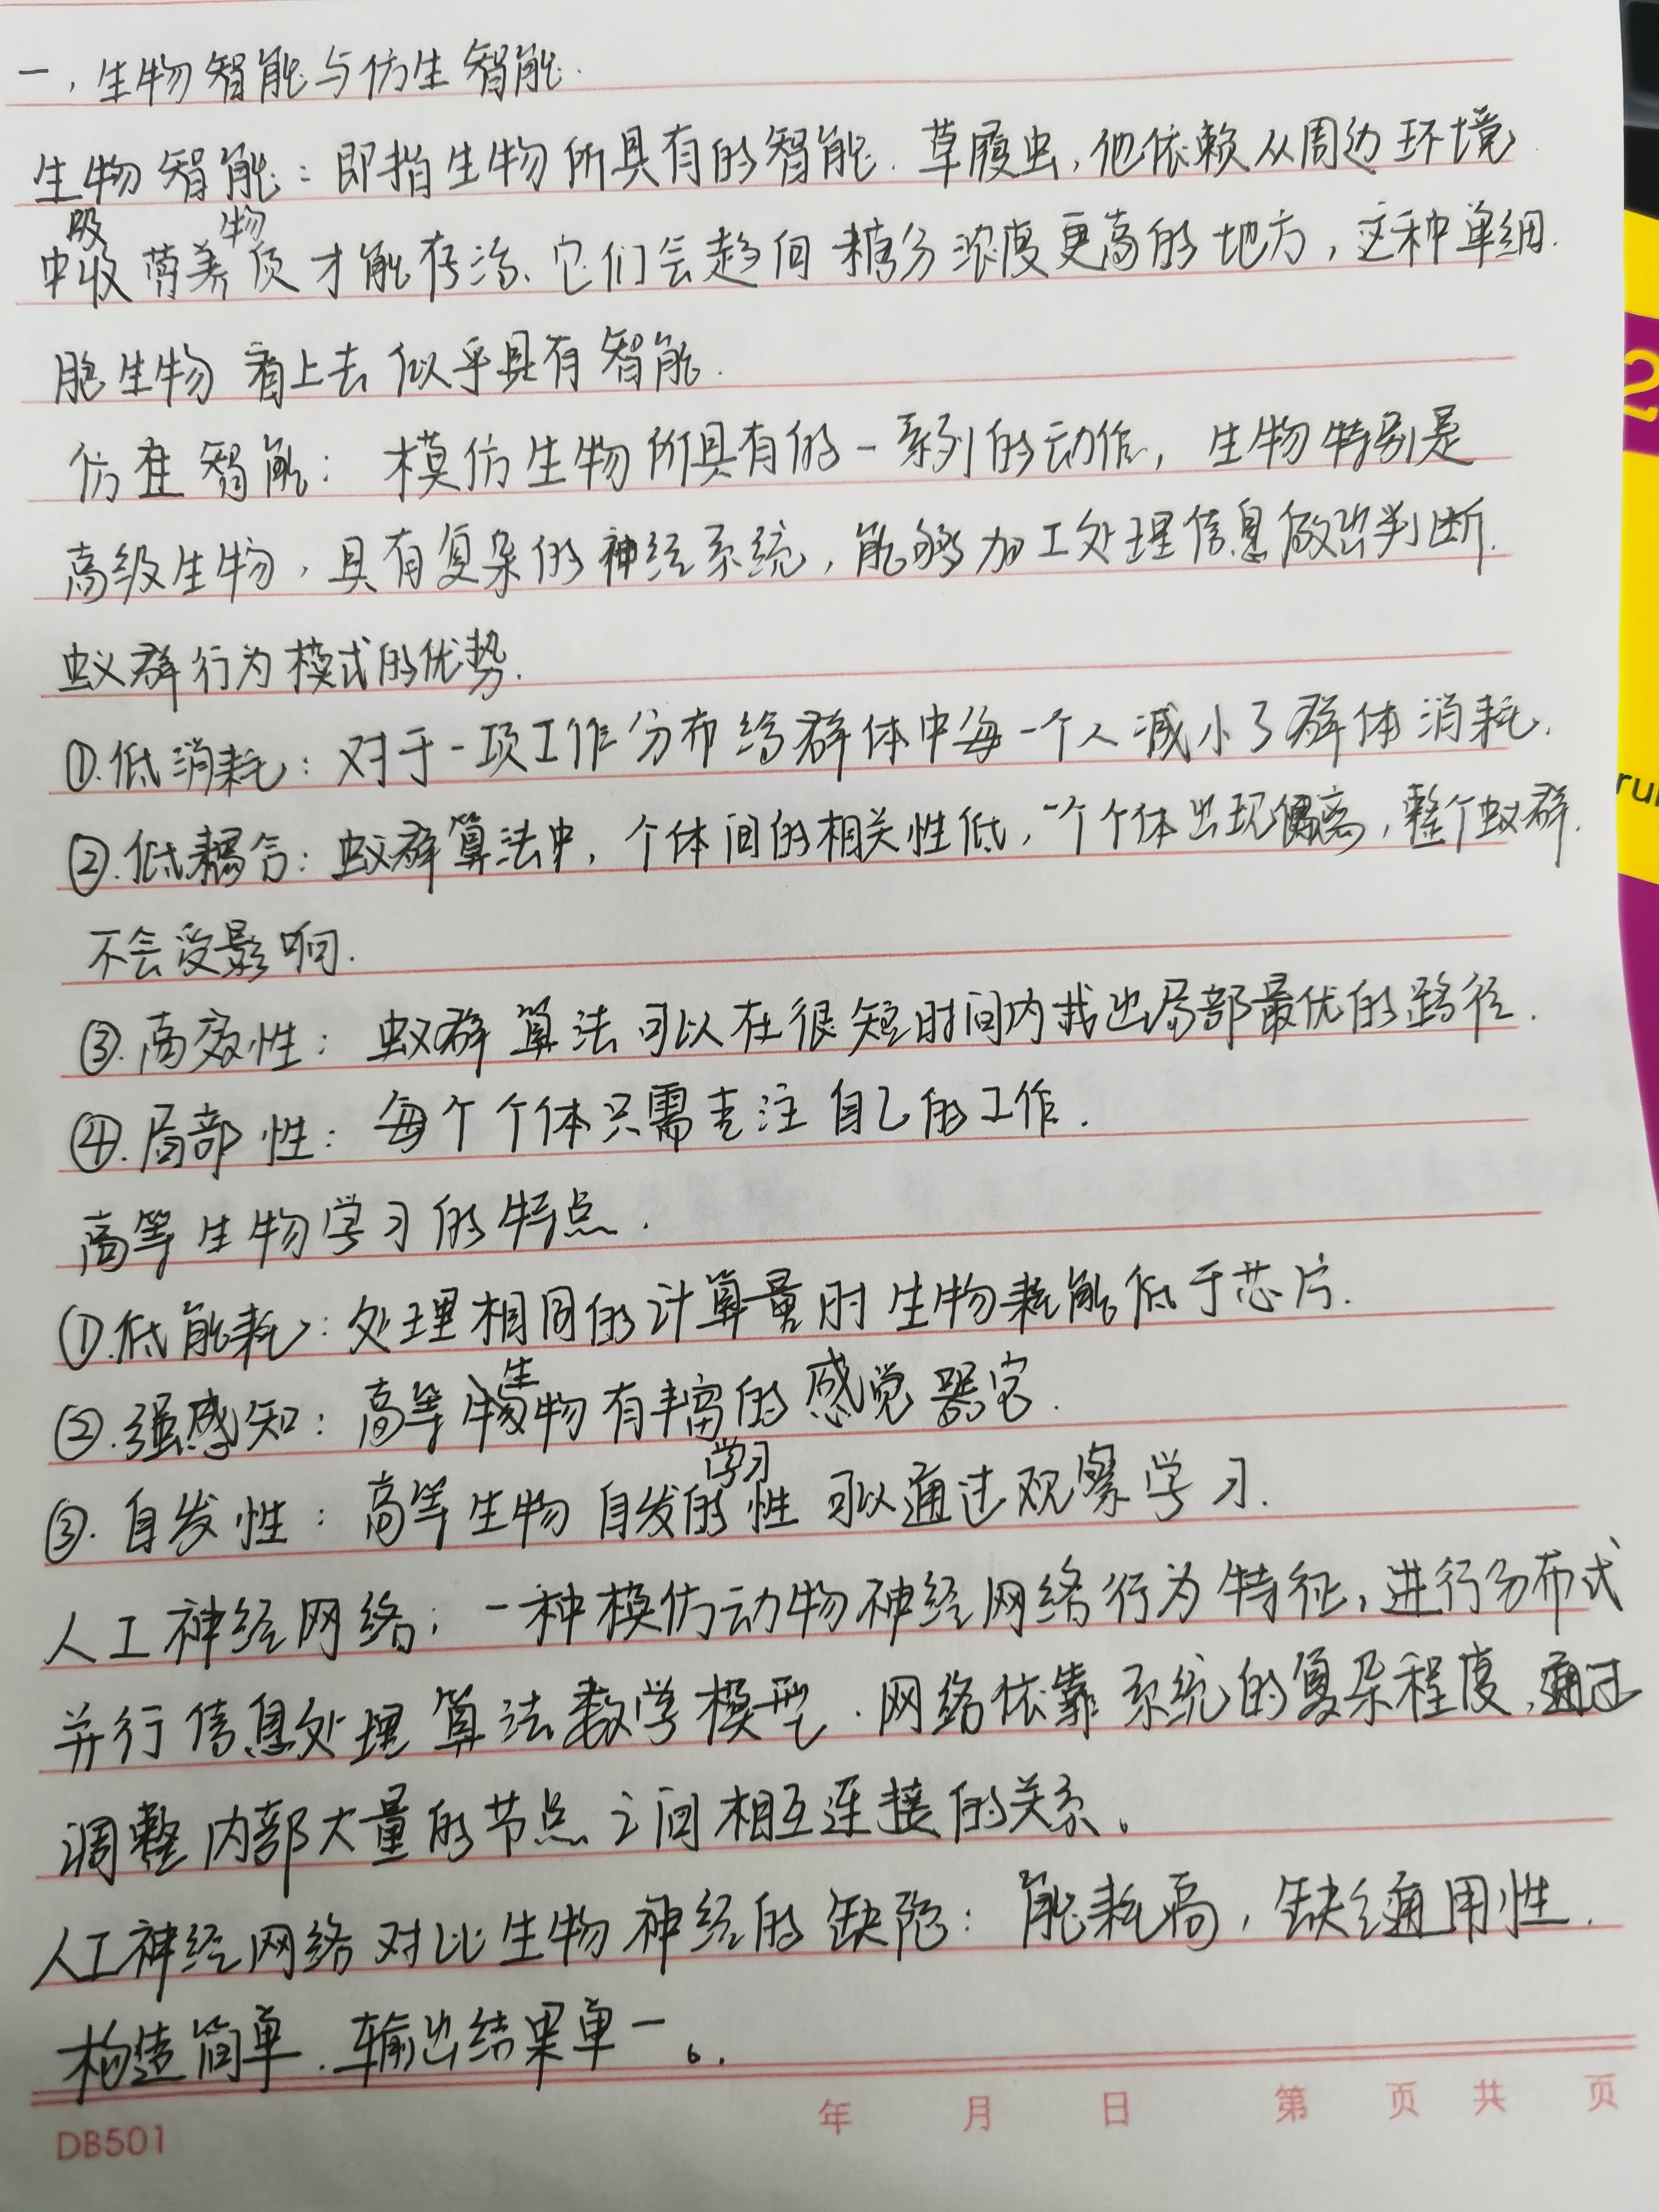 一，生物智能与仿生智能.
生物智能：即指生物所具有的智能. 草履虫，他依赖从周边环境
中吸收营养物质才能存活、它们会趋向糖分浓度更高的地方，这种单细
胞生物看上去似乎具有智能.
仿生智能： 模仿生物所具有的一系列的动作， 生物特别是
高级生物，具有复杂的神经系统，能够加工处理信息做出判断.
蚁群行为模式的优势.
①.低消耗：对于一项工作分布给群体中每一个人减小了群体消耗.
②.低耦合：蚁群算法中，个体间的相关性低，一个个体出现偏离，整个蚁群
不会受影响.
③.高效性： 蚁群算法可以在很短时间内找出局部最优的路径.
④.局部性： 每个个体只需专注自己的工作.
高等生物学习的特点.
①.低能耗：处理相同的计算量时生物耗能低于芯片.
②.强感知：高等生物有丰富的感觉器官.
③.自发性：高等生物自发的学习性可以通过观察学习.
人工神经网络：一种模仿动物神经网络行为特征，进行分布式
并行信息处理算法数学模型.网络依靠系统的复杂程度，通过
调整内部大量的节点之间相互连接的关系。
人工神经网络对比生物神经的缺陷：能耗高，缺乏通用性.
构造简单.输出结果单一。.
DB501 年 月 日 第 页 共 页
2
ru